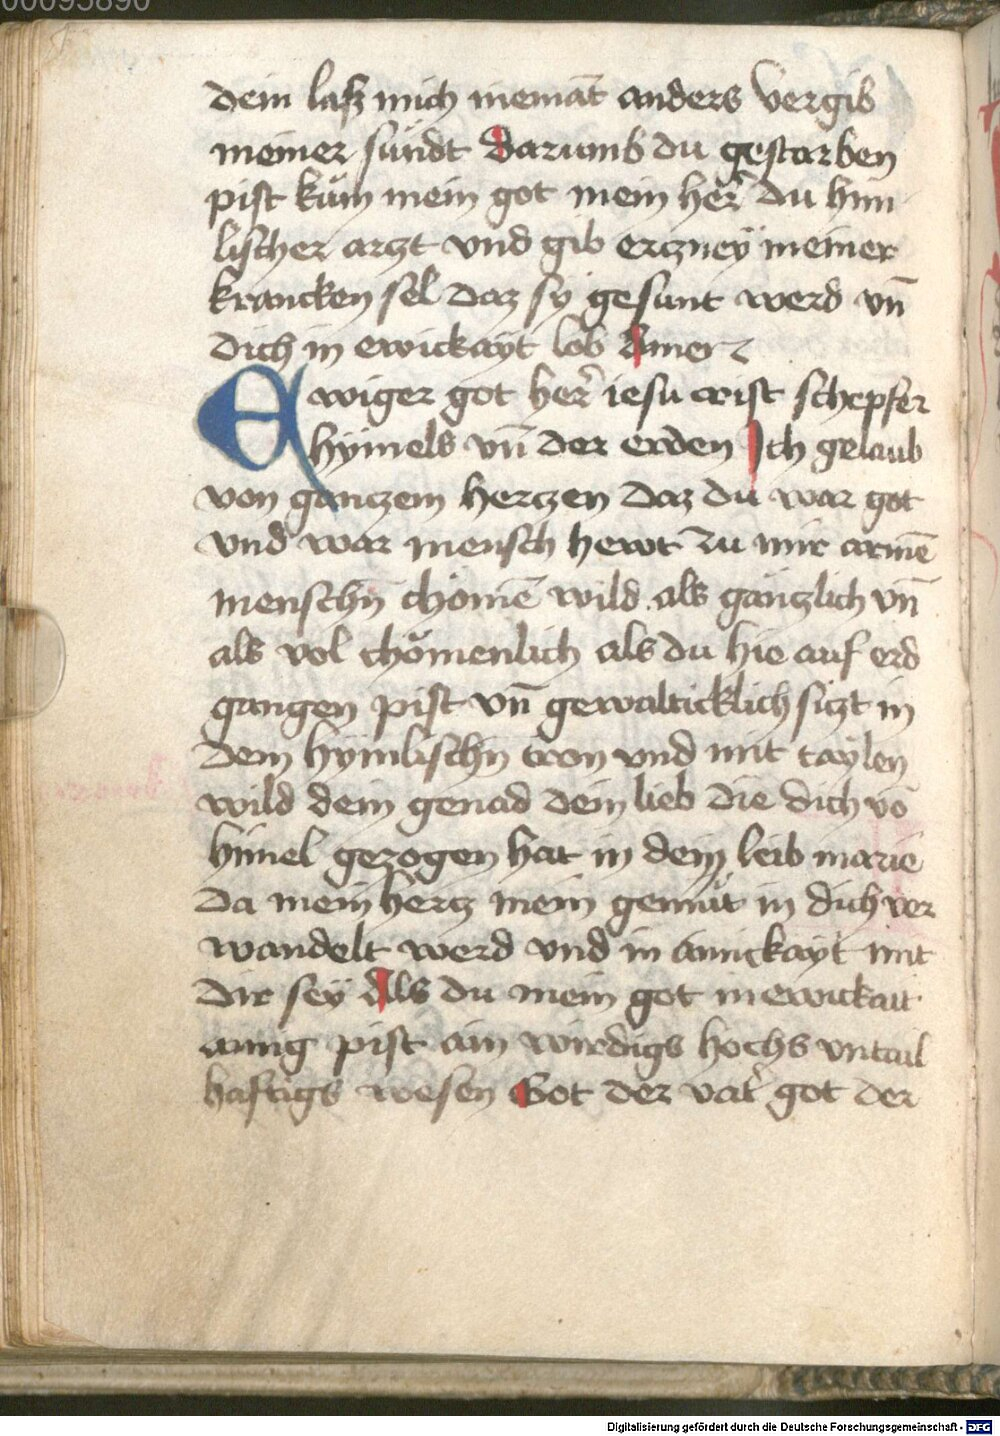 00095890
dein lasz mich niemāt anders vergib
meiner sündt Darumb du gestorben
pist kum mein got mein her̄ du him
lischer arczt vnd gib erczneÿ meiner
krancken sel daz sy gesunt werd vn̄
dich in ewickayt lob Amen
Ewiger got her̄ iesu crist schepfer
hÿmels vn̄ der erden Ich gelaub
von ganczem herczen daz du war got
vnd war mensch hewt zu mir armē
menschn̄ chömē wild als gänczlich vn̄
als vol chömenlich als du hie auf erd
gangen pist vn̄ gewalticklich siczt in
dem hÿmlischn tron vnd mit taylen
wild dein genad dein lieb die dich vō
himel gezogen hat in den leib marie
Da mein hercz mein gemüt in dich ver
wandelt werd vnd in ainickayt mit
dir seÿ Als du mein got in ewickait
ainig pist ain wirdigs hochs vntail
haftigs wesen Got der vat̄ got der
Digitalisierung gefördert durch die Deutsche Forschungsgemeinschaft - DFG